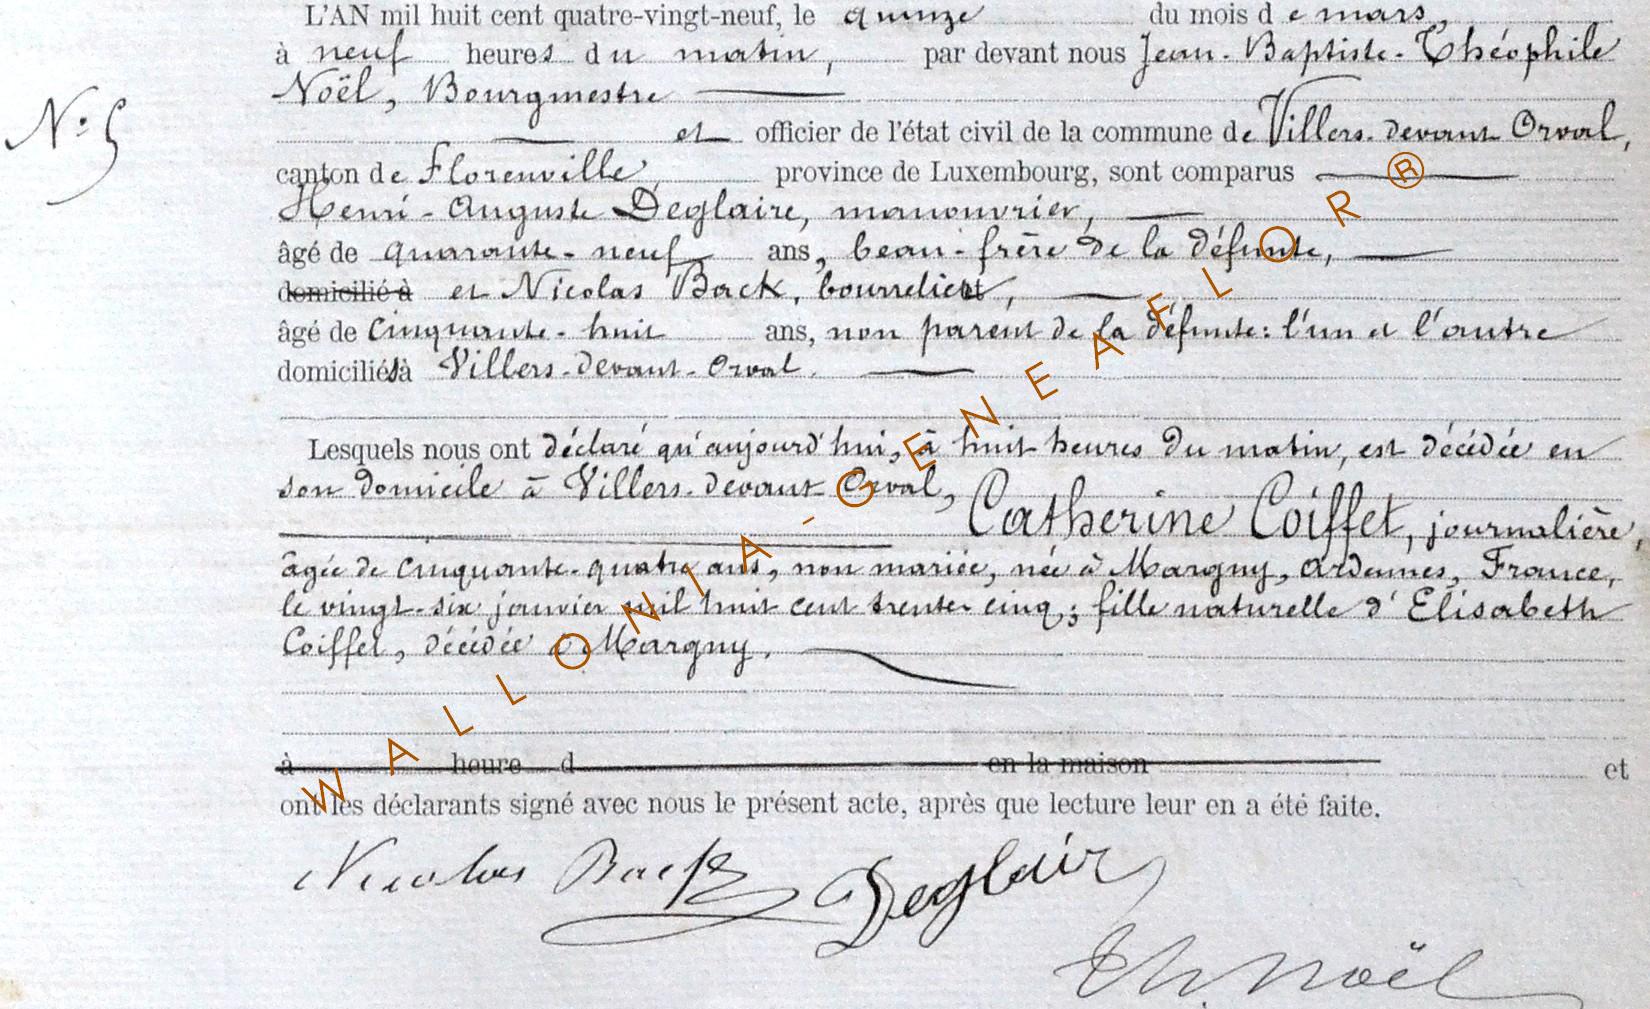 L'AN mil huit cent quatre-vingt-neuf, le quinze du mois de mars,
à neuf heures du matin, par devant nous Jean-Baptiste-Théophile
Noël, Bourgmestre
N° 5
et officier de l'état civil de la commune de Villers-devant Orval,
canton de Florenville, province de Luxembourg, sont comparus
Henri-Auguste Deglaire, manouvrier,
âgé de quarante-neuf ans, beau-frère de la défunte,
domicilié à et Nicolas Back, bourrelier,
âgé de cinquante-huit ans, non parent de la défunte: l'un et l'autre
domiciliés à Villers-devant-Orval.
Lesquels nous ont déclaré qu'aujourd'hui, à huit heures du matin, est décédée en
son domicile à Villers-devant Orval,
Catherine Coiffet, journalière,
âgée de cinquante-quatre ans, non mariée, née à Margny, Ardennes, France,
le vingt-six janvier mil huit cent trente-cinq; fille naturelle d'Elisabeth
Coiffet, décédée à Margny.
à heure d en la maison et
ont les déclarants signé avec nous le présent acte, après que lecture leur en a été faite.
Nicolas Back Deglair
Th. Noël
WALLONIA-GENEAFLOR®